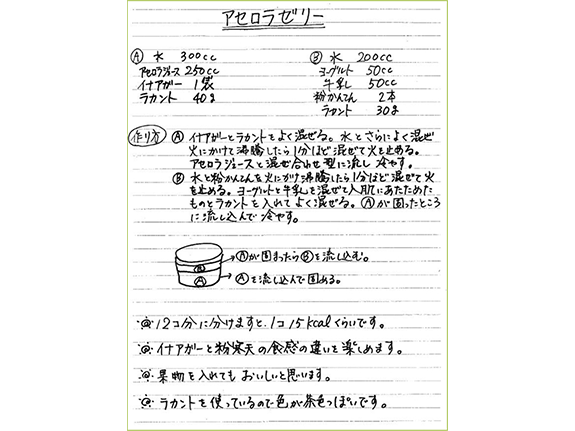 アセロラゼリー
Ⓐ 水 300cc
アセロラジュース 250cc
イナアガー 1袋
ラカント 40g
Ⓑ 水 200cc
ヨーグルト 50cc
牛乳 50cc
粉かんてん 2本
ラカント 30g
作り方 Ⓐ イナアガーとラカントをよく混ぜる。水とさらによく混ぜ
火にかけて沸騰したら1分ほど混ぜて火を止める。
アセロラジュースと混ぜ合わせ型に流し冷やす。
Ⓑ 水と粉かんてんを火にかけ沸騰したら1分ほど混ぜて火
を止める。ヨーグルトと牛乳を混ぜて人肌にあたためた
ものとラカントを入れてよく混ぜる。Ⓐが固ったところ
に流し込んで冷やす。
Ⓐが固まったらⒷを流し込む。
Ⓑ
Ⓐを流し込んで固める。
Ⓐ
12コ分に分けますと、1コ15kcalくらいです。
イナアガーと粉寒天の食感の違いを楽しめます。
果物を入れてもおいしいと思います。
ラカントを使っているので色が茶色っぽいです。